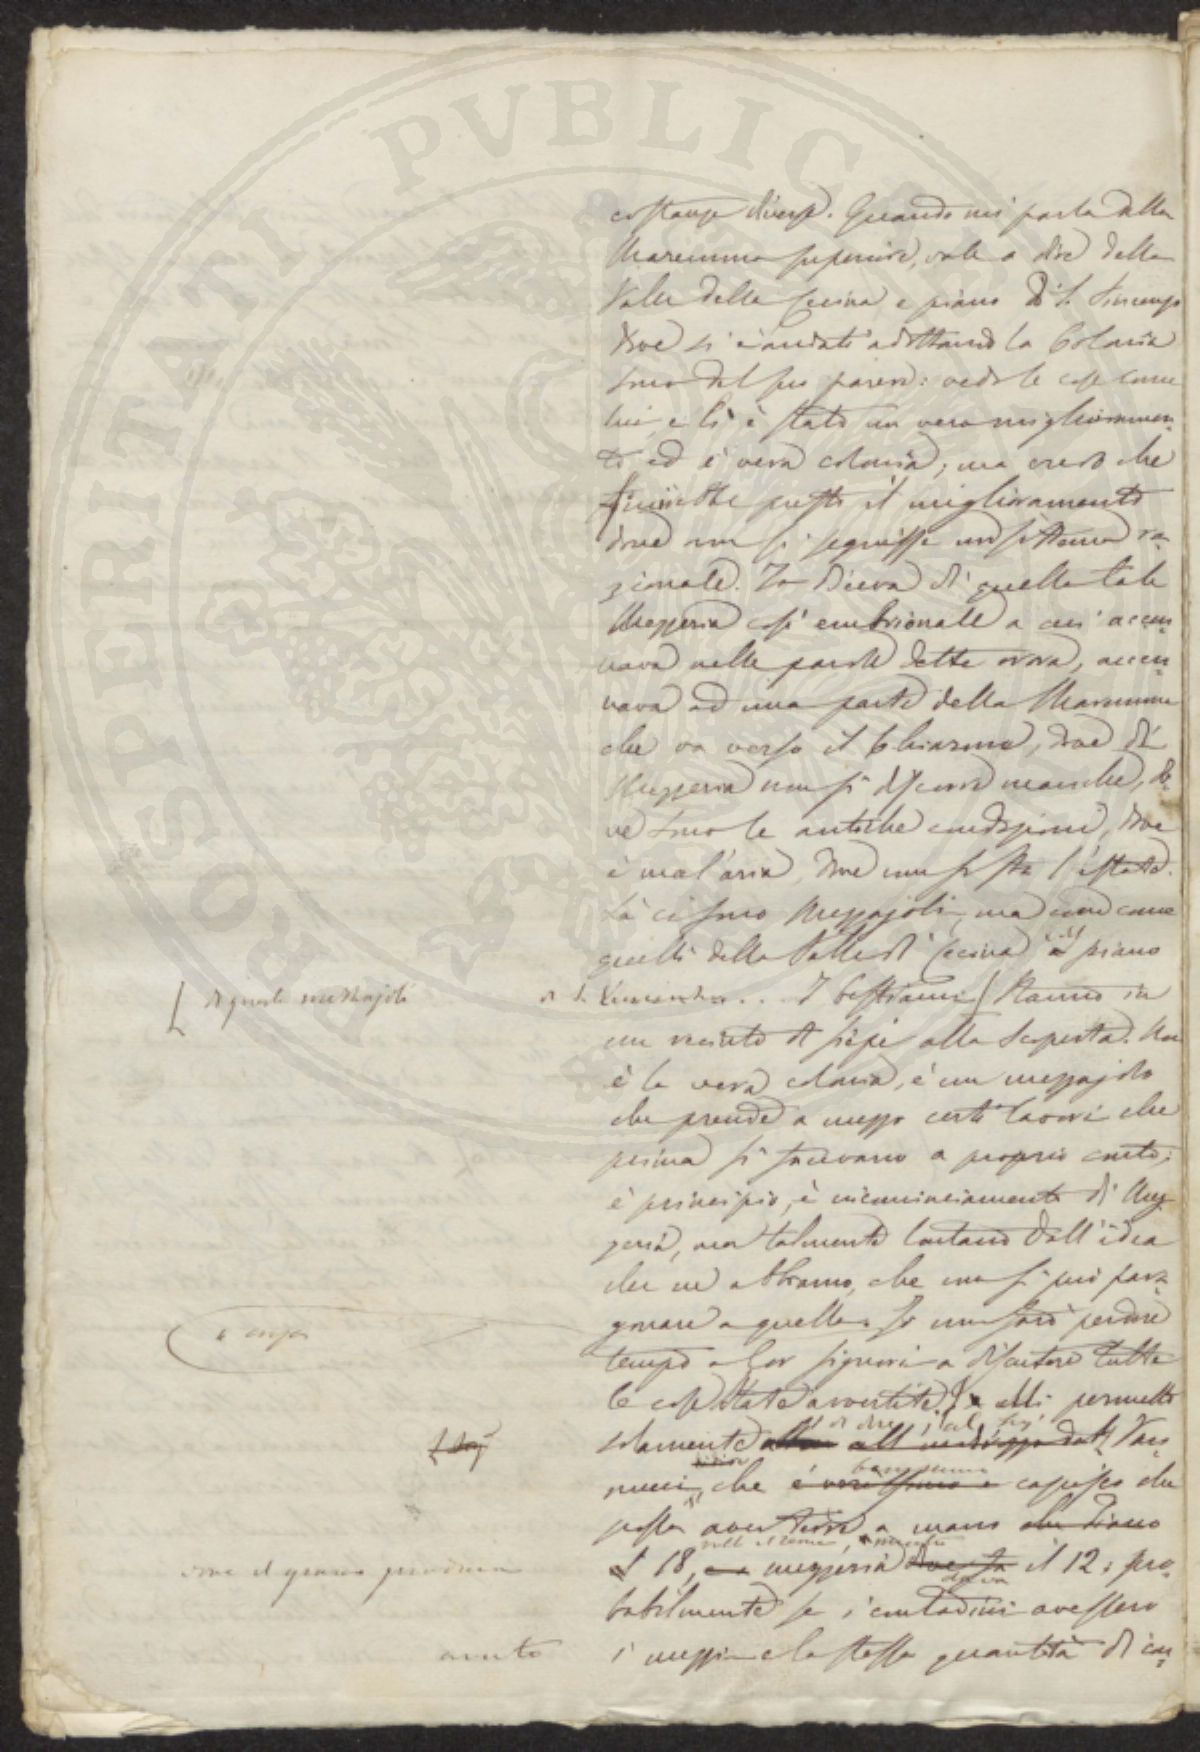 costanze diverse. Quando mi parla della
Maremma superiore, vale a dire della
Valle della Cecina e piano di S. Vincenzo
dove si è andati adottando la Colonia
sono del suo parere: vedo le cose come
lui, e lì è stato un vero miglioramen-
to ed è vera colonia; ma credo che
finirebbe presto il miglioramento
dove non si seguisse un sistema ra-
zionale. Io diceva di quella tale
Mezzeria così embrionale a cui accen-
nava nelle parole dette ora, accen-
nava ad una parte della Maremma
che va verso il Chiarone, dove di
Mezzeria non si discorre neanche, do-
ve sono le antiche condizioni, dove
è mal'aria, dove non si sta l'estate.
Là ci sono Mezzajoli, ma come
quelli della Valle di Cecina e piano
di S. Vincenzo... I bestiami stanno in
di questi mezzajoli
un recinto di siepi alla scoperta. Non
è la vera colonia, è un mezzajolo
che prende a mezzo certi lavori che
prima si facevano a proprio conto;
è principio, è incominciamento di Mez-
zeria, ma talmente lontano dall'idea
che ne abbiamo, che non si può para-
gonare a quella. Io non farò perdere
tempo a Lor signori a discutere tutte
le cose state avvertite. mi permetto
solamente di dire al Sig. Van-
nucci, che capisco che
possa aver a mano
il 18, mezzeria dava il 12: pro-
dove il grano produceva
babilmente se i contadini avessero
avuto
i mezzi e la stessa quantità di con-